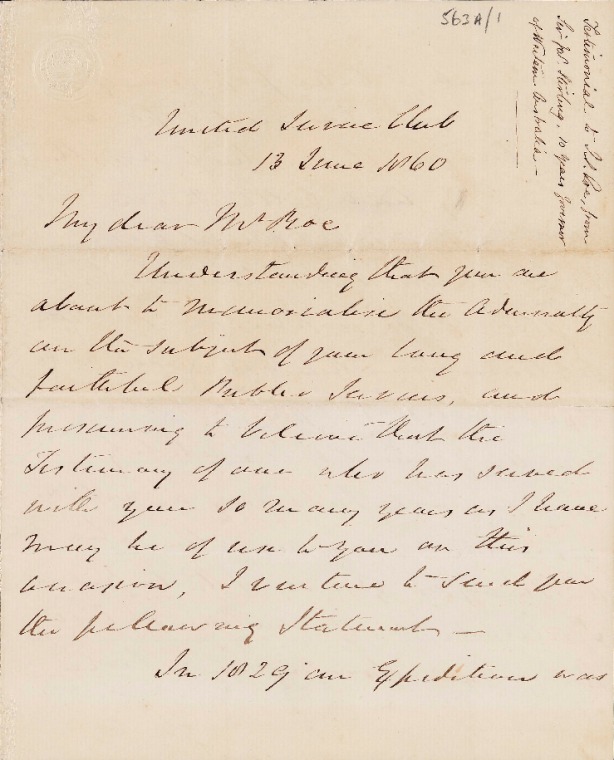 563A/1
Testimonial to J.S. Roe, from
Sir Jas. Stirling, 10 years Governor
of Western Australia —
United Service Club
13 June 1860
My dear Mr Roe
Understanding that you are
about to memorialise the Admiralty
on the subject of your long and
faithful Public Services, and
presuming to believe that the
Testimony of one who has served
with you so many years as I have
may be of use to you on this
occasion, I venture to send you
the following Statement —
In 1829 an Expedition was